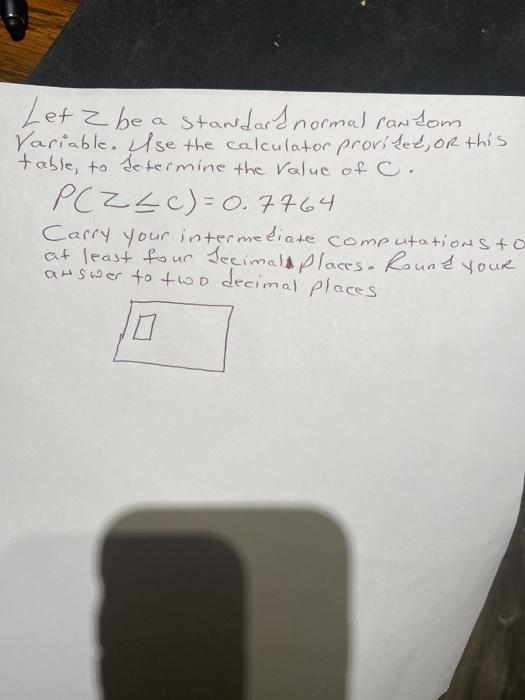 Let Z be a standard normal random
Variable. Use the calculator provided, OR this
table, to determine the value of C.
P(Z≤c)=0.7764
Carry your intermediate computations to
at least four decimal places. Round your
answer to two decimal places